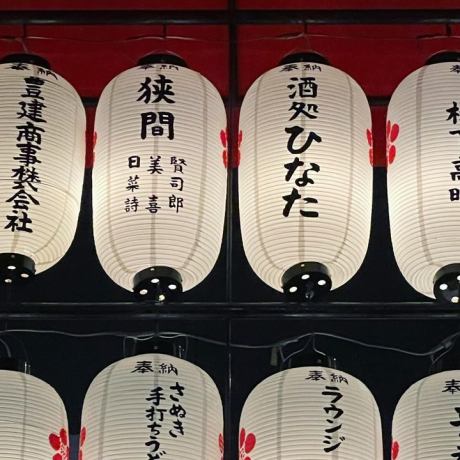 奉納
豊建商事株式会社
奉納
狭間
賢司郎
美喜
日菜詩
奉納
酒処ひなた
奉納
さぬき
手打ちうど
奉納
ラウンジ